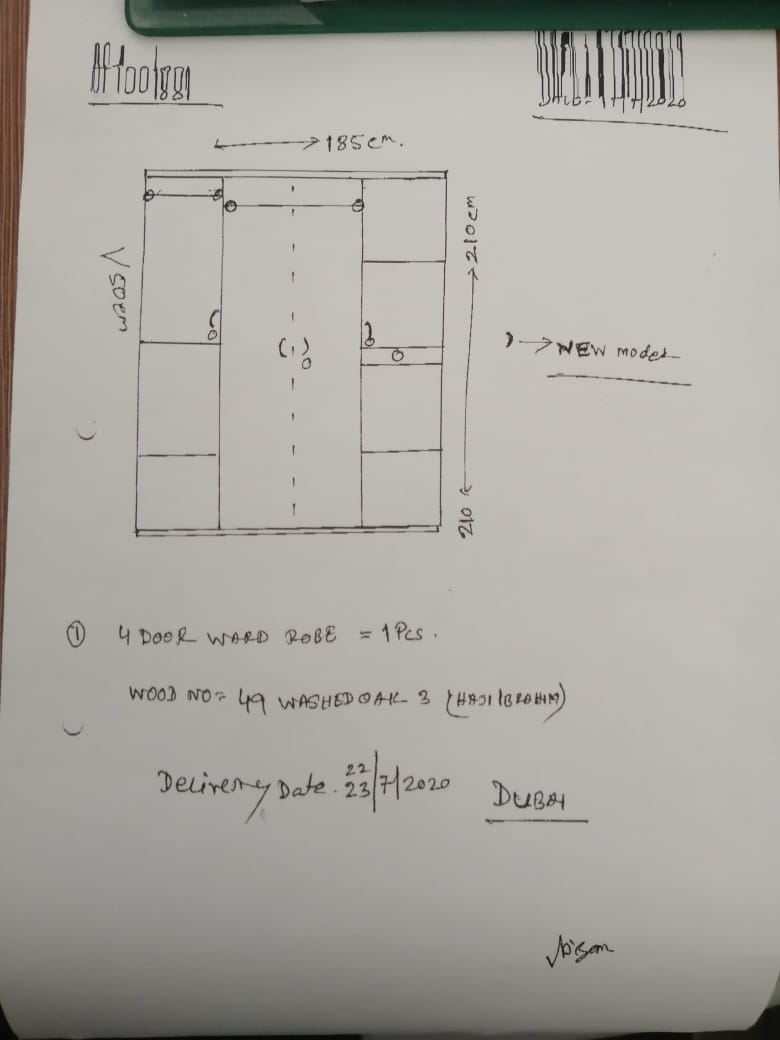 Af1001881
Date- 17/7/2020
185 cm.
210 cm
210
NEW model
① 4 DOOR WARD ROBE = 1 Pcs.
WOOD NO= 49 WASHED OAK 3 (HAJI IBRAHIM)
22
Delivery Date. 23/7/2020
DUBAI